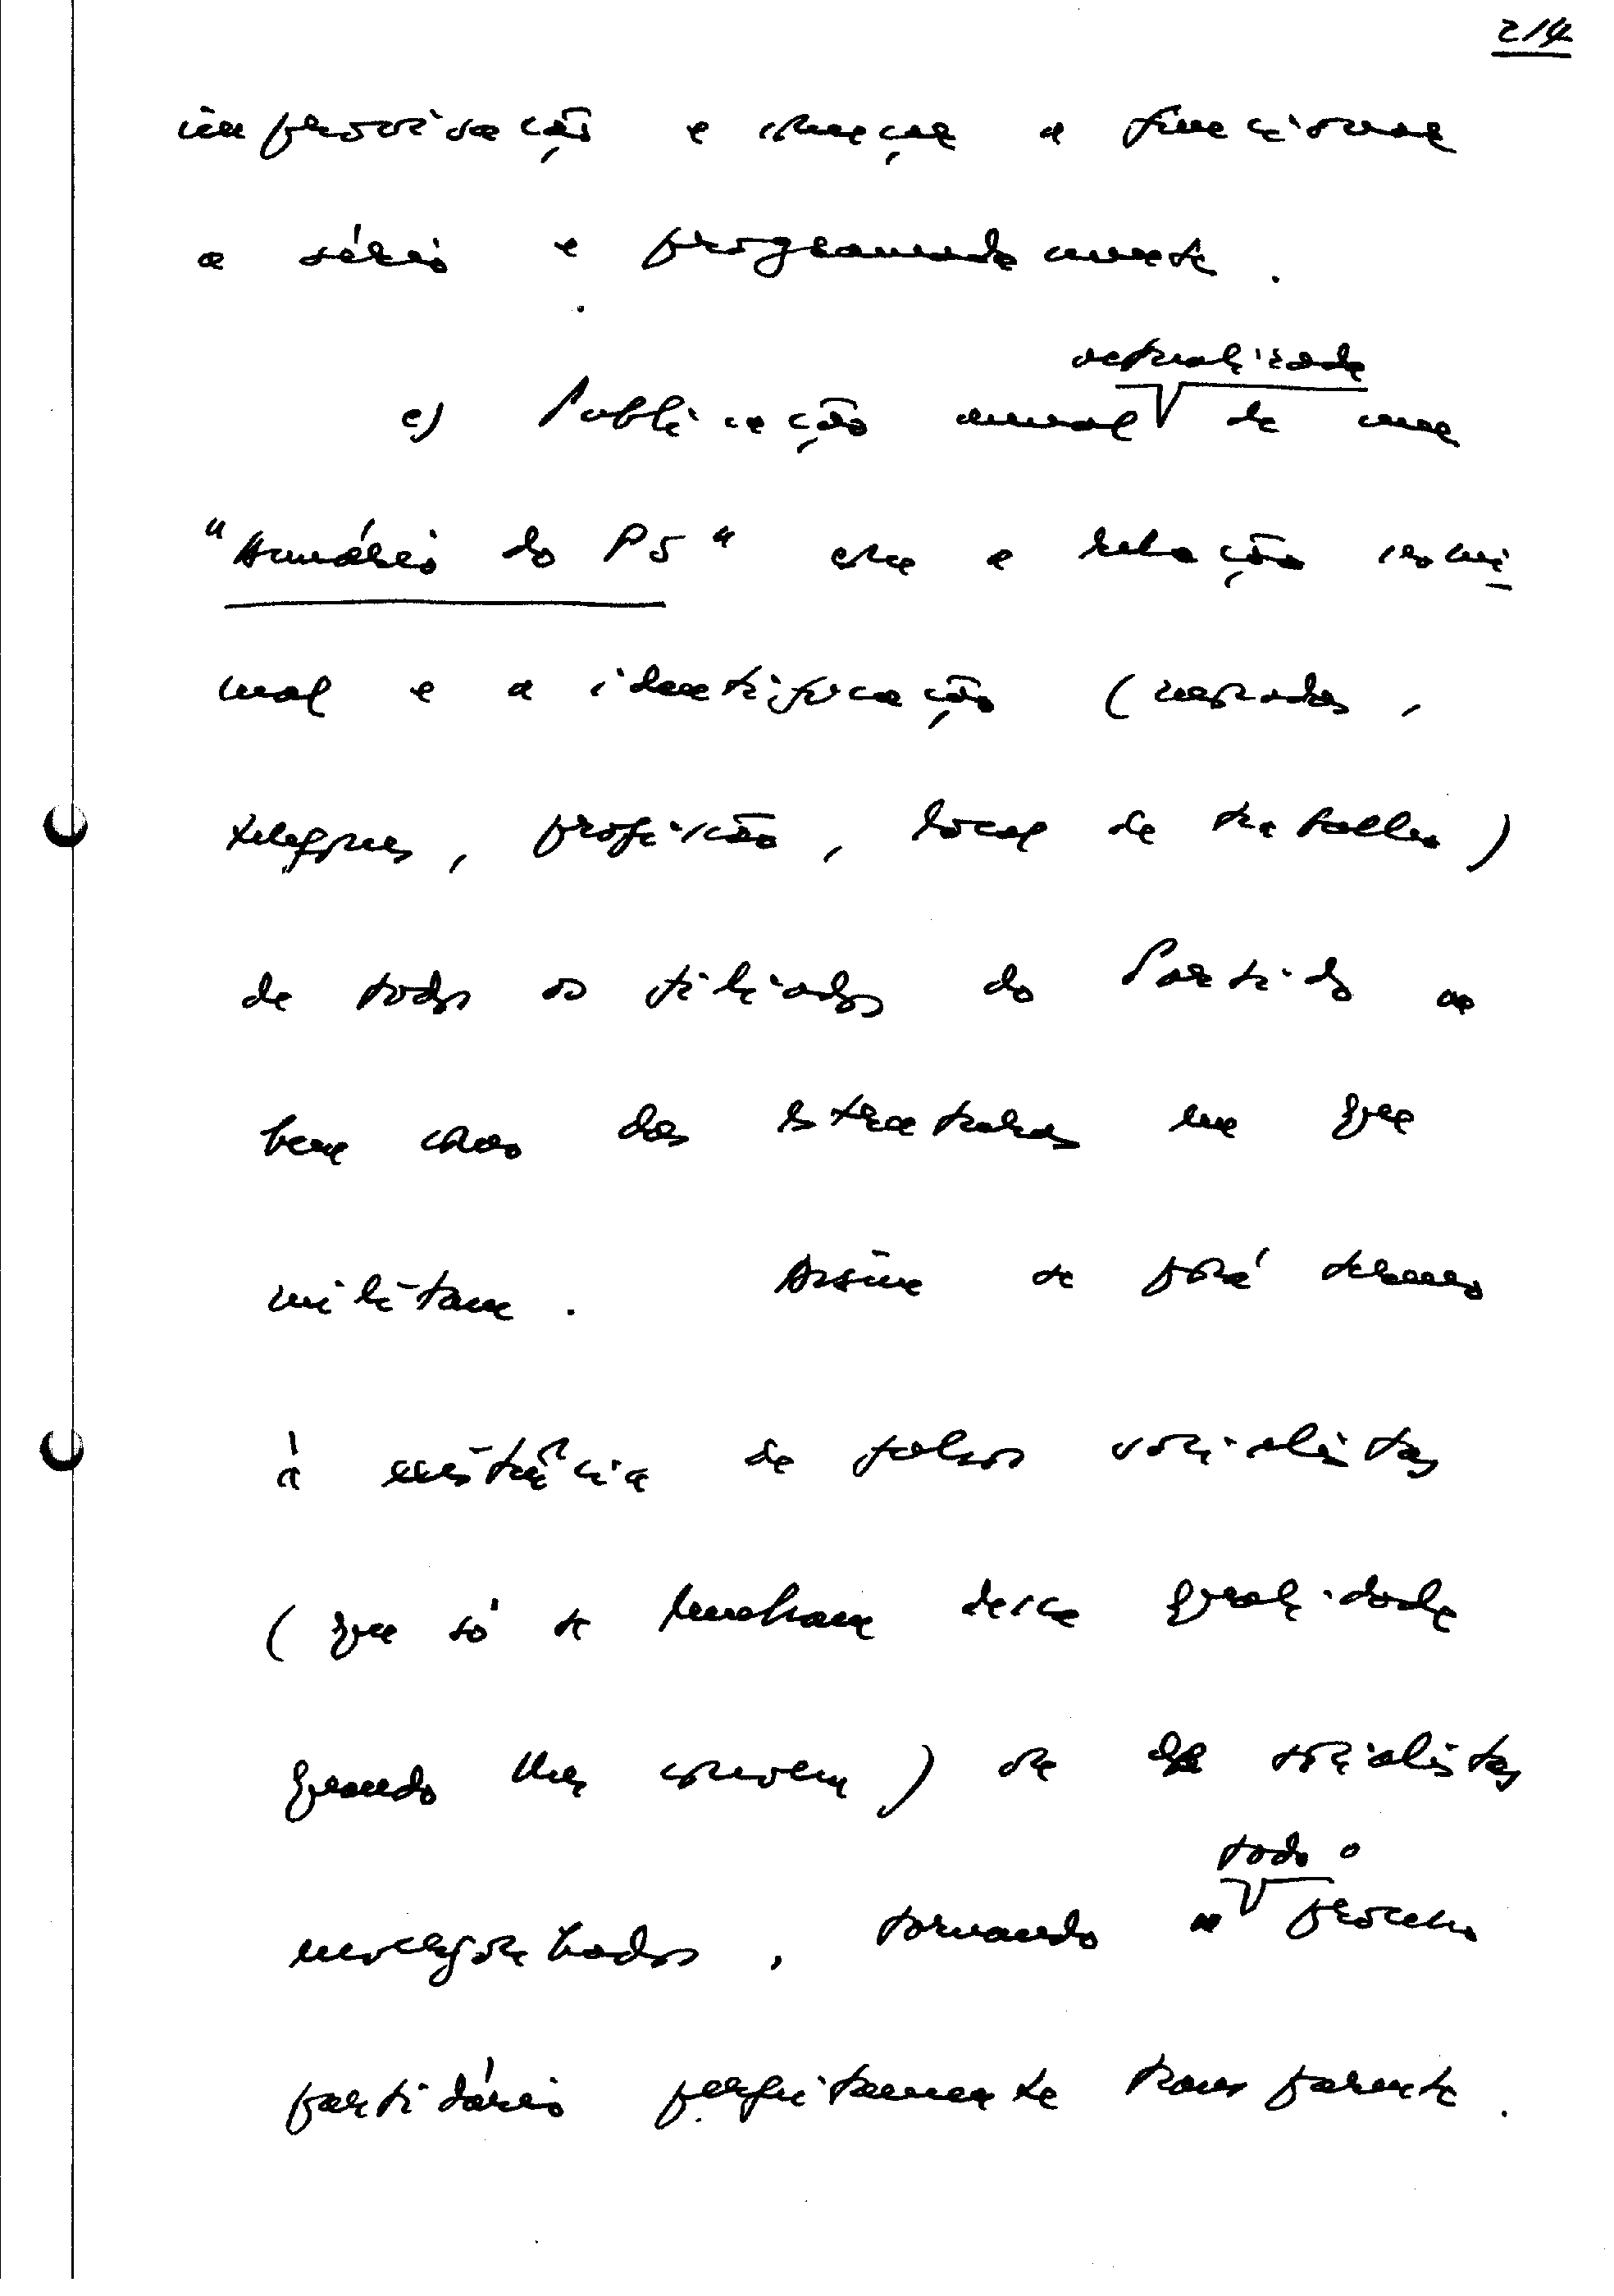 214
improvisação e começar a funcionar
a sério e programadamente.
actualizada
e) Publicação anual de um
"Anuário do PS" com a relação nomi
nal e a identificação (moradas,
telefones, profissão, local de trabalho)
de todos os filiados do Partido
bem como das estruturas em que
militam. Assim se porá termo
à existência de falsos socialistas
(que só se lembram dessa qualidade
quando lhes convém) ou de socialistas
todo o
envergonhados, tornando processo
partidário perfeitamente transparente.